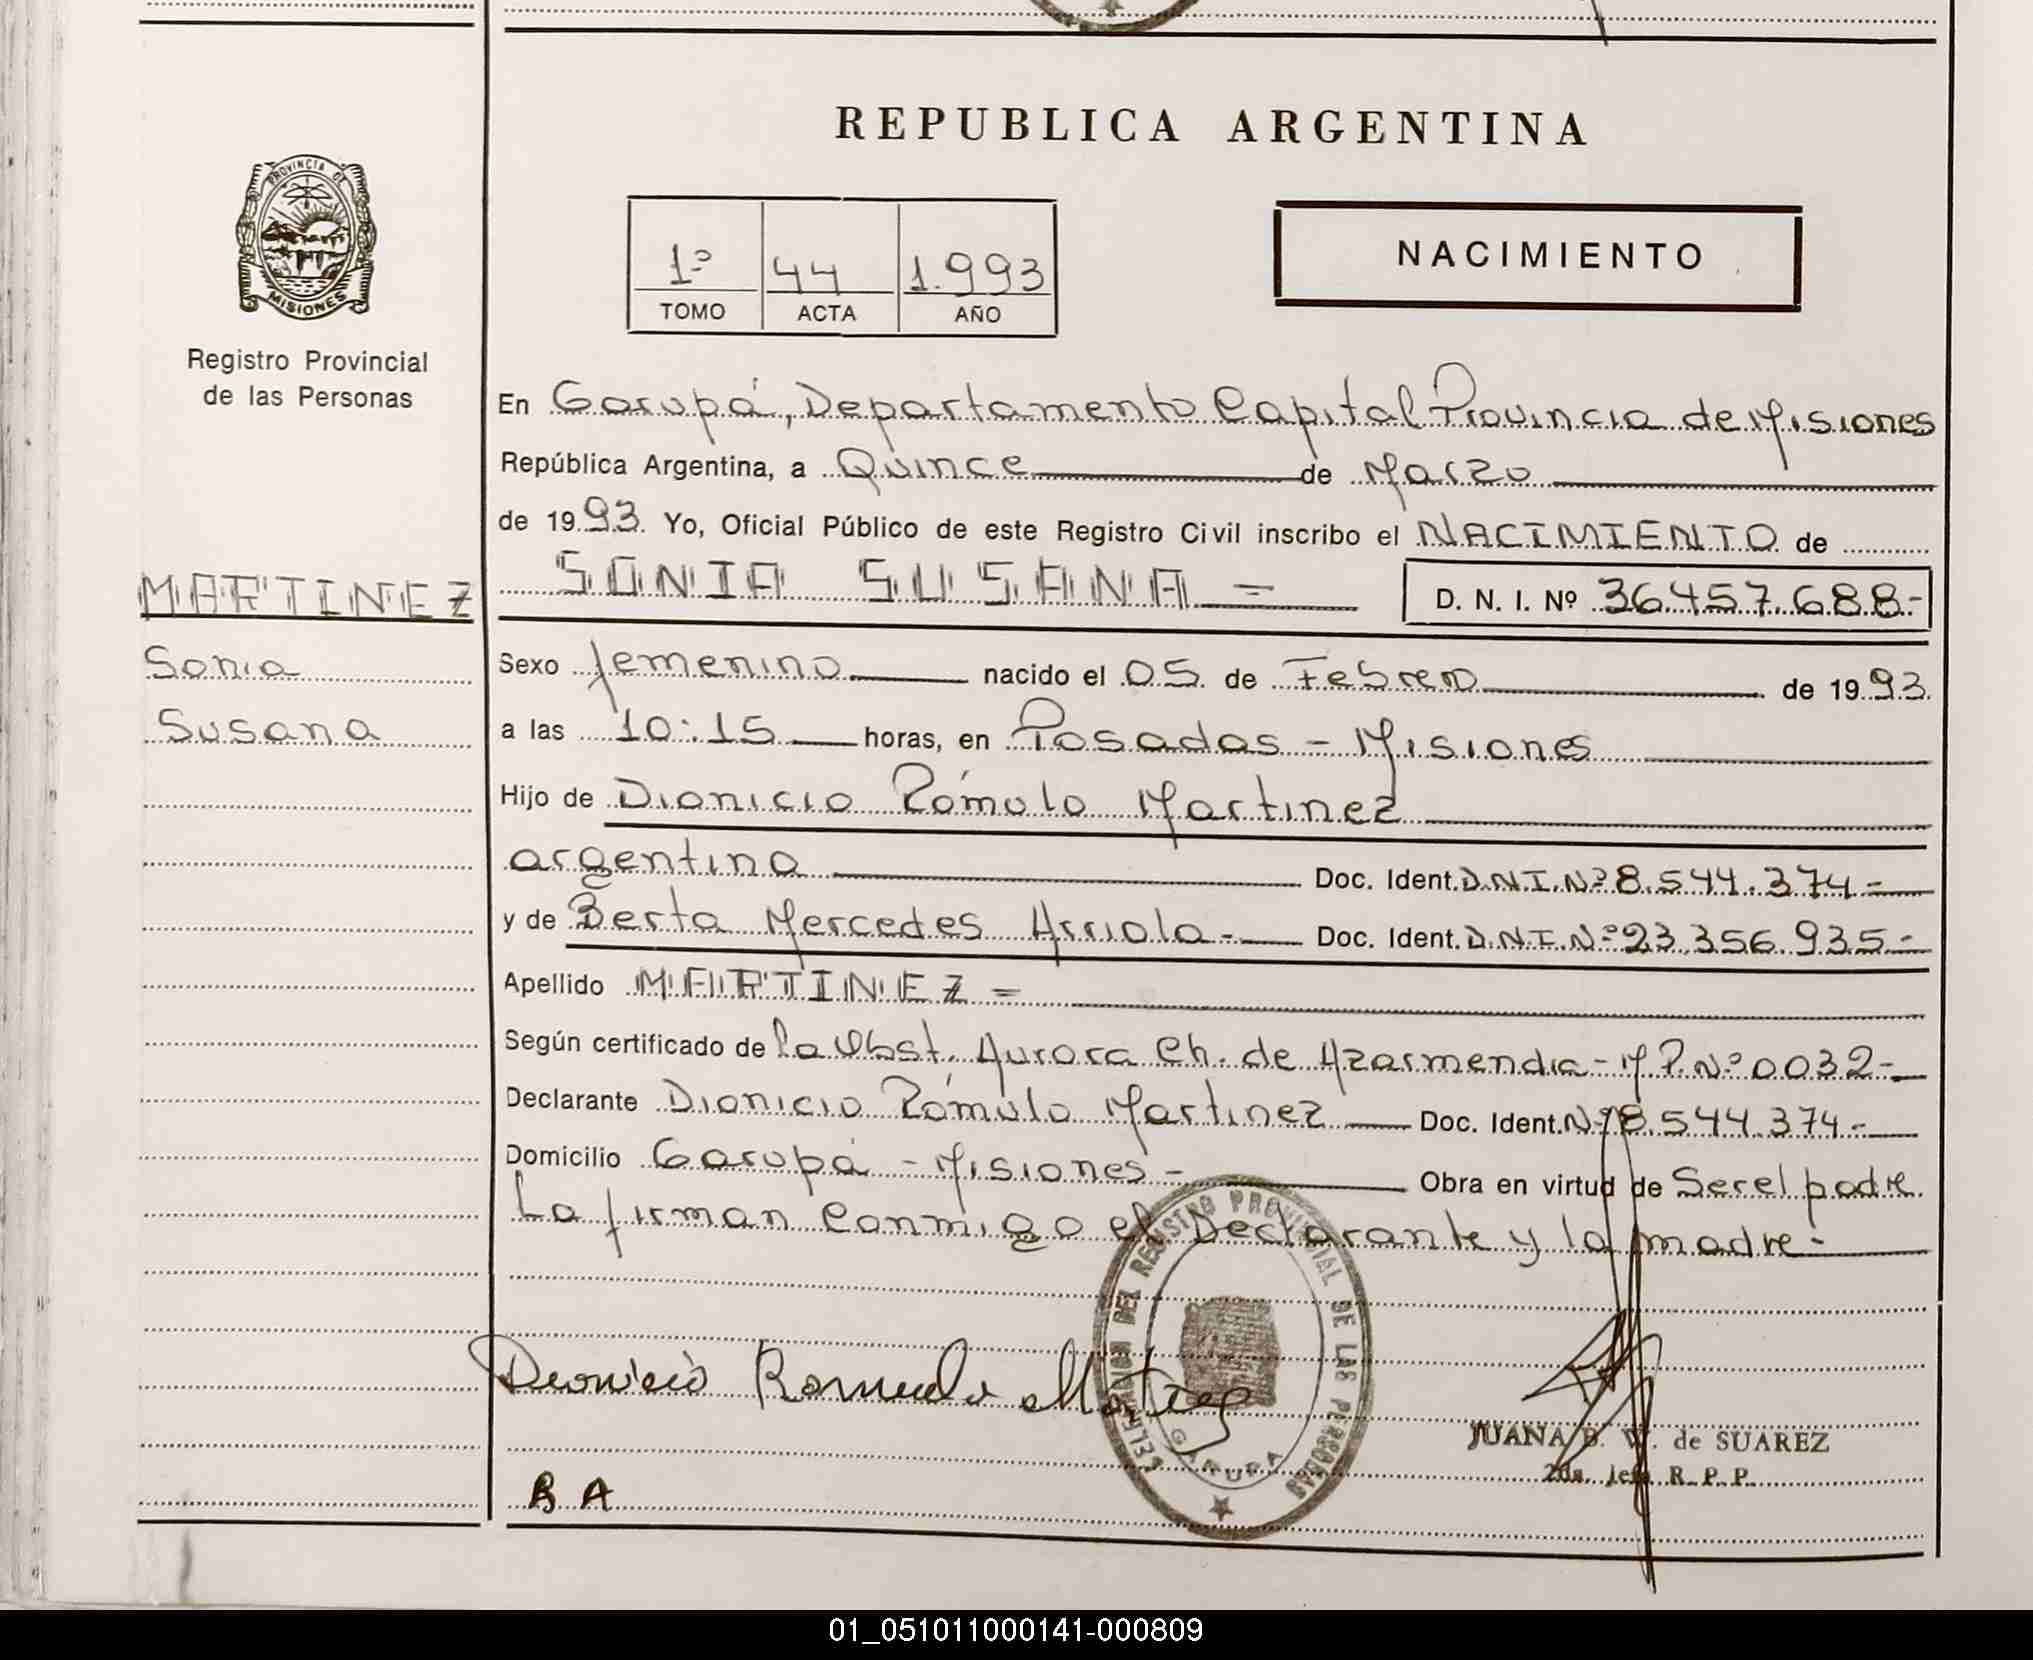 REPUBLICA ARGENTINA
PROVINCIA DE
MISIONES
Registro Provincial
de las Personas
1º 44 1.993
TOMO ACTA AÑO
NACIMIENTO
En Garupá, Departamento Capital Provincia de Misiones
República Argentina, a Quince de Marzo
de 1993. Yo, Oficial Público de este Registro Civil inscribo el NACIMIENTO de
MARTINEZ
Sonia
Susana
SONIA SUSANA = D. N. I. Nº 36.457.688.-
Sexo femenino nacido el 05 de Febrero de 1993.
a las 10:15 horas, en Posadas - Misiones
Hijo de Dionicio Rómulo Martinez
argentino Doc. Ident. D.N.I.Nº 8.544.374-
y de Berta Mercedes Arriola.- Doc. Ident. D.N.I.Nº 23.356.935-
Apellido MARTINEZ =
Según certificado de la Obst. Aurora Ch. de Azarmendia - M.P.Nº 0032-
Declarante Dionicio Rómulo Martinez Doc. Ident. Nº 8.544.374.-
Domicilio Garupá - Misiones - Obra en virtud de Ser el padre.
La firman conmigo el Declarante y la madre.-
DEL REGISTRO PROVINCIAL DE LAS PERSONAS
GARUPA
Dionicio Romulo Martinez
JUANA B. W. de SUAREZ
2da. Jefa R. P. P.
B A
01_051011000141-000809